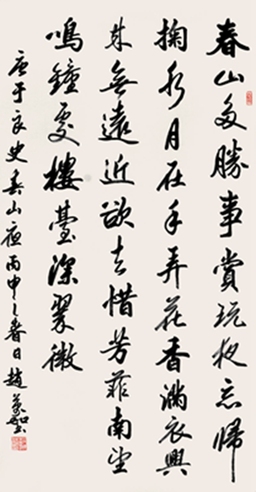 春山多勝事賞玩夜忘歸
掬水月在手弄花香滿衣興
來無遠近欲去惜芳菲南望
鳴鐘處樓臺深翠微
唐于良史春山夜丙申之春日趙